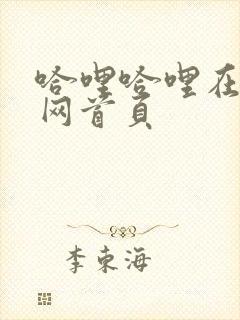 哈哩哈哩在
网首页
李东海